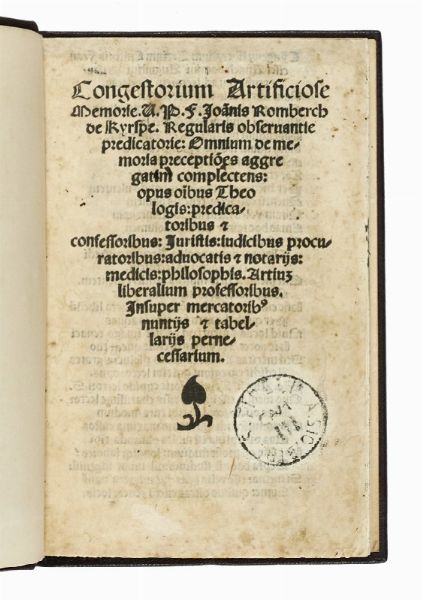 Congestorium Artificiose
Memorie. V. P. F. Joānis Romberch
de Kyrspe. Regularis obseruantie
predicatorie: Omnium de me-
moria preceptiōes aggre
gatim complectens:
opus oībus Theo
logis: predica-
toribus &
confessoribus: Juristis: iudicibus procu-
ratoribus: aduocatis & notarijs:
medicis: philosophis. Artiuʒ
liberalium professoribus.
Insuper mercatoribꝰ
nuntijs & tabel-
larijs perne-
cessarium.